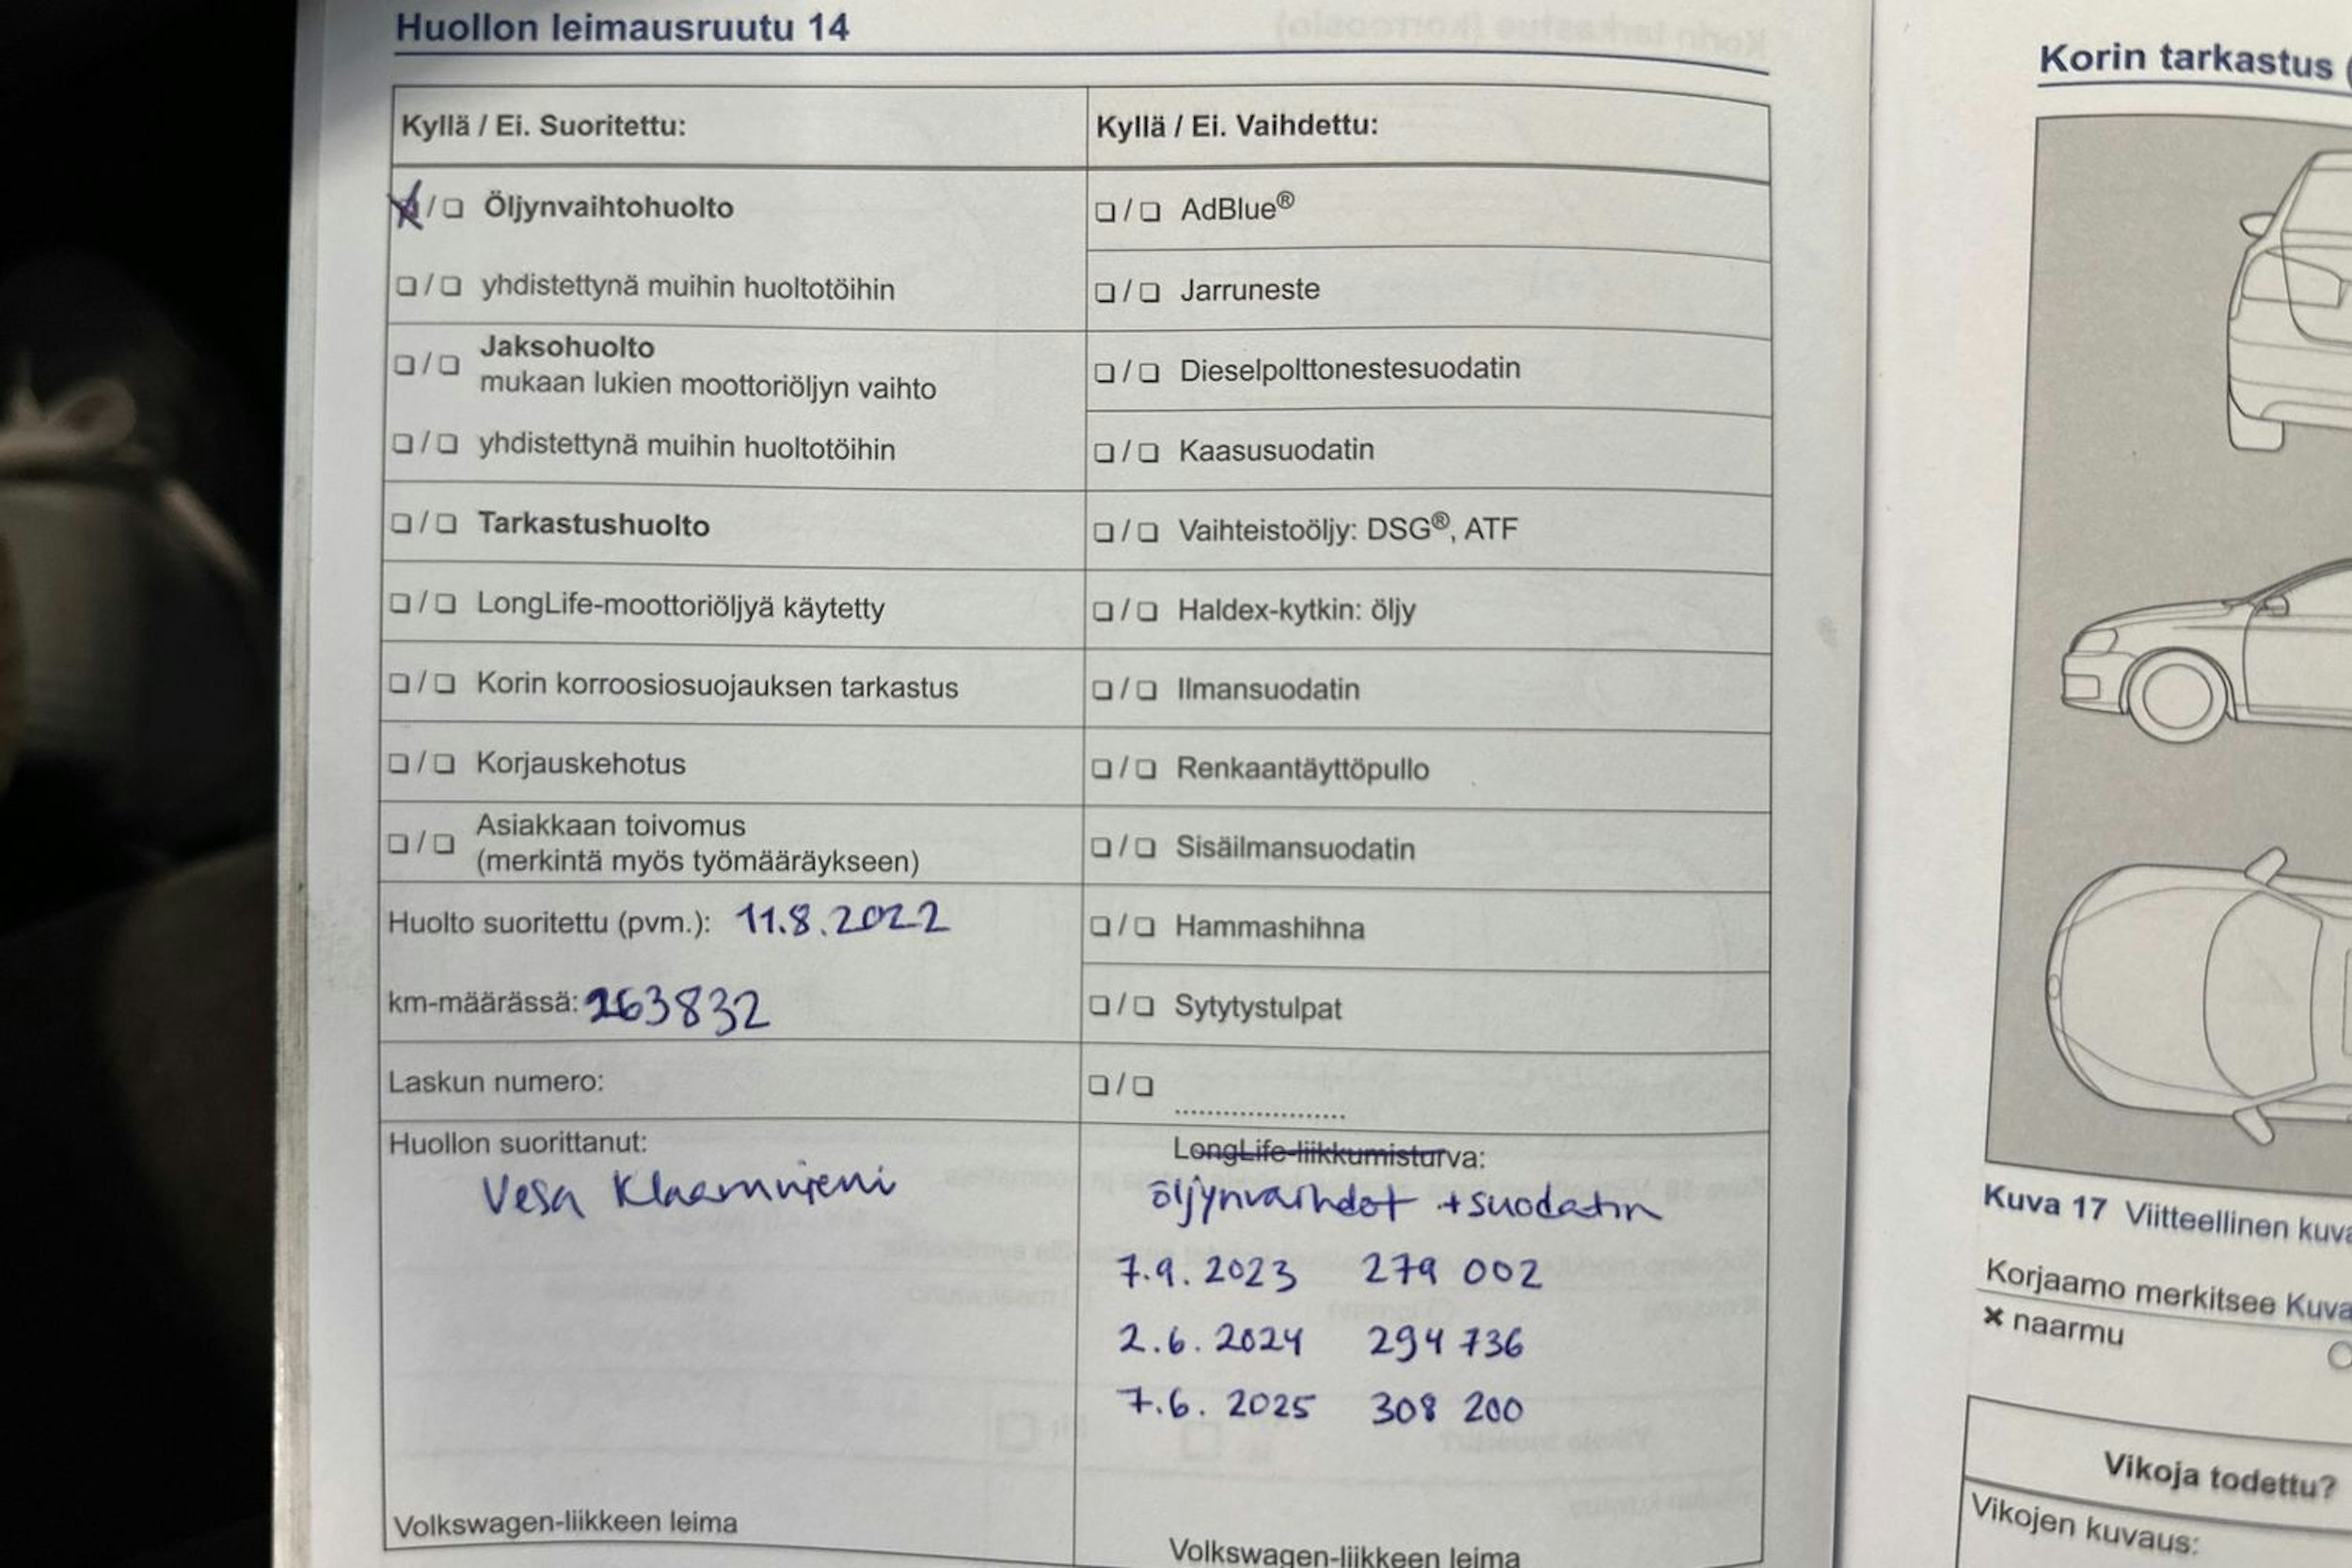 Huollon leimausruutu 14
Kyllä / Ei. Suoritettu:
Öljynvaihtohuolto
yhdistettynä muihin huoltotöihin
Jaksohuolto
mukaan lukien moottoriöljyn vaihto
yhdistettynä muihin huoltotöihin
Tarkastushuolto
LongLife-moottoriöljyä käytetty
Korin korroosiosuojauksen tarkastus
Korjauskehotus
Asiakkaan toivomus
(merkintä myös työmääräykseen)
Huolto suoritettu (pvm.): 11.8.2022
km-määrässä: 263832
Laskun numero:
Huollon suorittanut:
Vesa
Volkswagen-liikkeen leima
Kyllä / Ei. Vaihdettu:
AdBlue®
Jarruneste
Dieselpolttonestesuodatin
Kaasusuodatin
Vaihteistoöljy: DSG®, ATF
Haldex-kytkin: öljy
Ilmansuodatin
Renkaantäyttöpullo
Sisäilmansuodatin
Hammashihna
Sytytystulpat
....................
LongLife-liikkumisturva:
öljynvaihdot +suodatin
7.9.2023 279 002
2.6.2024 294 736
7.6.2025 308 200
Volkswagen-liikkeen leima
Korin tarkastus (
Kuva 17 Viitteellinen kuva
Korjaamo merkitsee Kuva
× naarmu
Vikoja todettu?
Vikojen kuvaus: